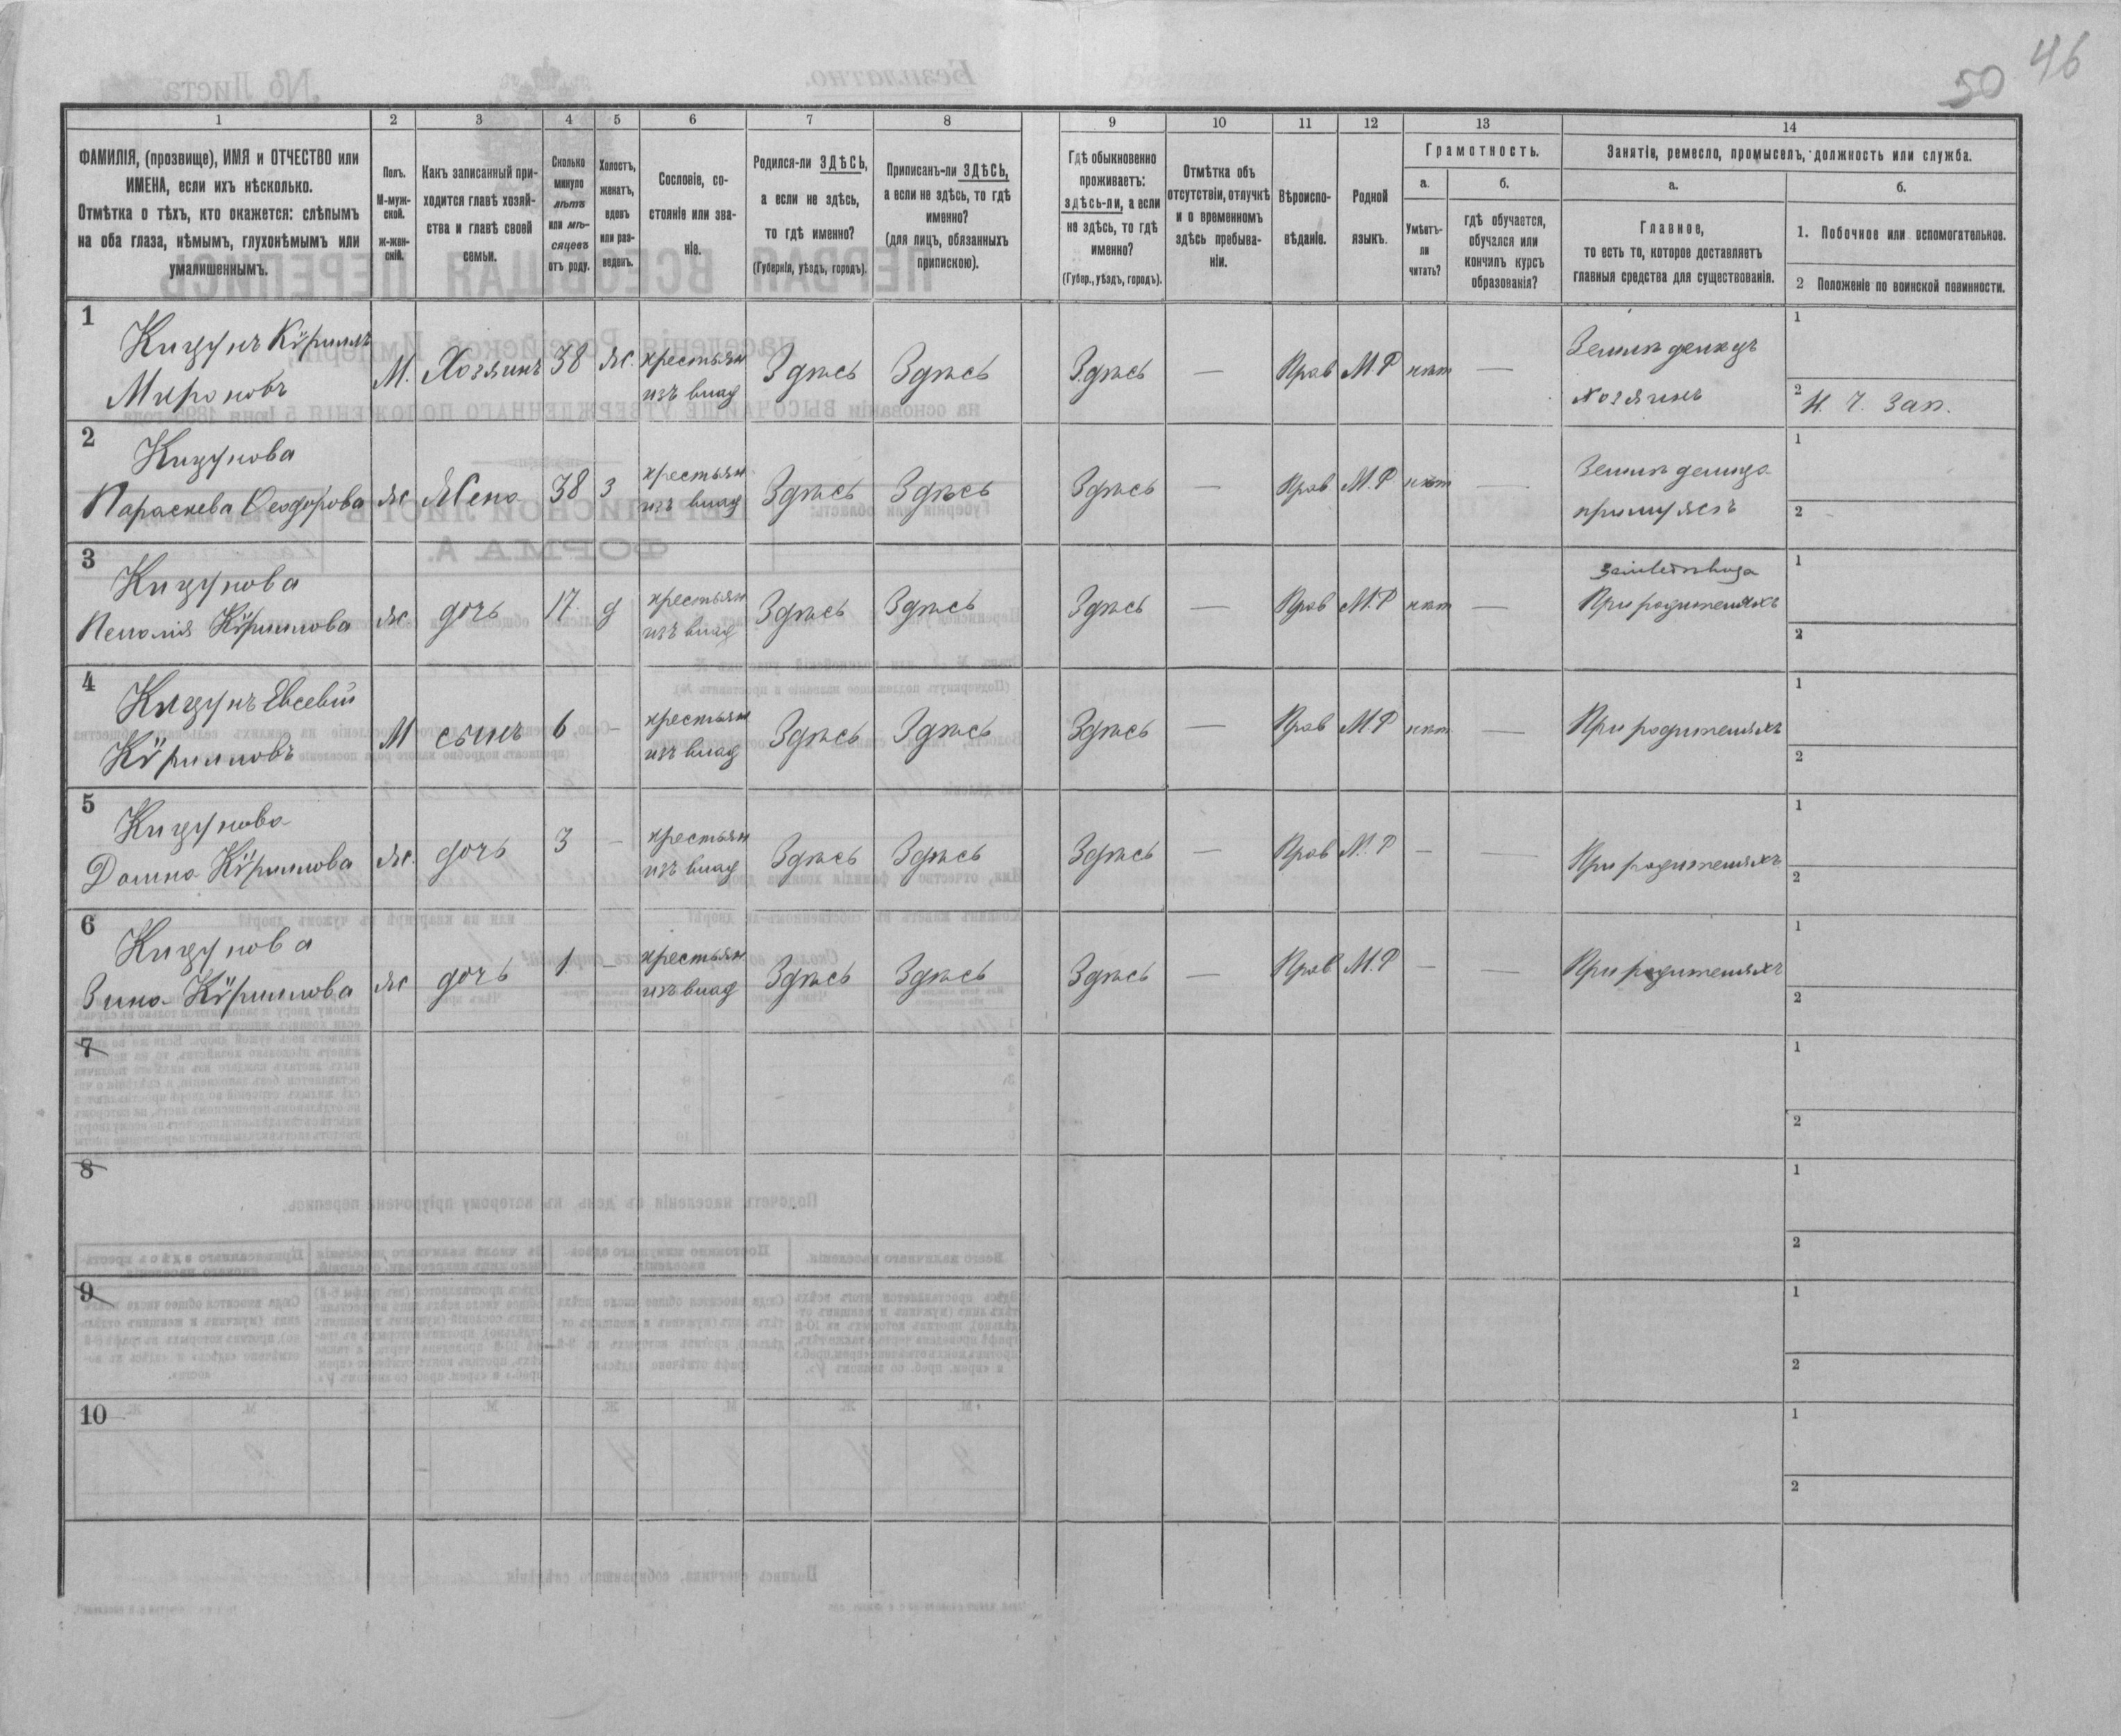 46
50
1 2 3 4 5 6 7 8 9 10 11 12 13 14
ФАМИЛІЯ, (прозвище), ИМЯ и ОТЧЕСТВО или
ИМЕНА, если ихъ нѣсколько.
Отмѣтка о тѣхъ, кто окажется: слѣпымъ
на оба глаза, нѣмымъ, глухонѣмымъ или
умалишеннымъ.
Полъ.
М-муж-
ской.
Ж-жен-
скій.
Какъ записанный при-
ходится главѣ хозяй-
ства и главѣ своей
семьи.
Сколько
минуло
лѣтъ
или мѣ-
сяцевъ
отъ роду.
Холостъ,
женатъ,
вдовъ
или раз-
веденъ.
Сословіе, со-
стояніе или зва-
ніе.
Родился-ли ЗДѢСЬ,
а если не здѣсь,
то гдѣ именно?
(Губернія, уѣздъ, городъ).
Приписанъ-ли ЗДѢСЬ,
а если не здѣсь, то гдѣ
именно?
(для лицъ, обязанныхъ
припискою).
Гдѣ обыкновенно
проживаетъ:
здѣсь-ли, а если
не здѣсь, то гдѣ
именно?
(Губер., уѣздъ, городъ).
Отмѣтка объ
отсутствіи, отлучкѣ
и о временномъ
здѣсь пребыва-
ніи.
Вѣроиспо-
вѣданіе.
Родной
языкъ.
Грамотность.
а.
Умѣетъ-
ли
читать?
б.
гдѣ обучается,
обучался или
кончилъ курсъ
образованія?
Занятіе, ремесло, промыселъ, должность или служба.
а.
Главное,
то есть то, которое доставляетъ
главныя средства для существованія.
б.
1. Побочное или вспомогательное.
2 Положеніе по воинской повинности.
1
Кицунъ Кѵриллъ
Мироновъ
М. Хозяинъ 38 ж. крестьян
изъ влад
Здѣсь Здѣсь Здѣсь — Прав М.Р нѣт —
Земледѣлецъ
хозяинъ
1
2 Н. Ч. Зап.
2
Кицунова
Параскева Ѳеодорова
ж Жена 38 З крестьян
изъ влад
Здѣсь Здѣсь Здѣсь — Прав М.Р нѣт —
при мужѣ
1
2
3
Кицунова
Кѵриллова
ж дочь 17 д крестьян
изъ влад
Здѣсь Здѣсь Здѣсь — Прав М.Р нѣт —
При родителяхъ
1
2
4
Кицунъ Евсевій
Кѵрилловъ
М сынъ 6 — крестьян
изъ влад
Здѣсь Здѣсь Здѣсь — Прав М.Р нѣт —
При родителяхъ
1
2
5
Кицунова
Домна Кѵриллова
ж. дочь 3 — крестьян
изъ влад
Здѣсь Здѣсь Здѣсь — Прав М.Р — —
При родителяхъ
1
2
6
Кицунова
Зина Кѵриллова
ж дочь 1 — крестьян
изъ влад
Здѣсь Здѣсь Здѣсь — Прав М.Р — —
При родителяхъ
1
2
7
1
2
8
1
2
9
1
2
10
1
2